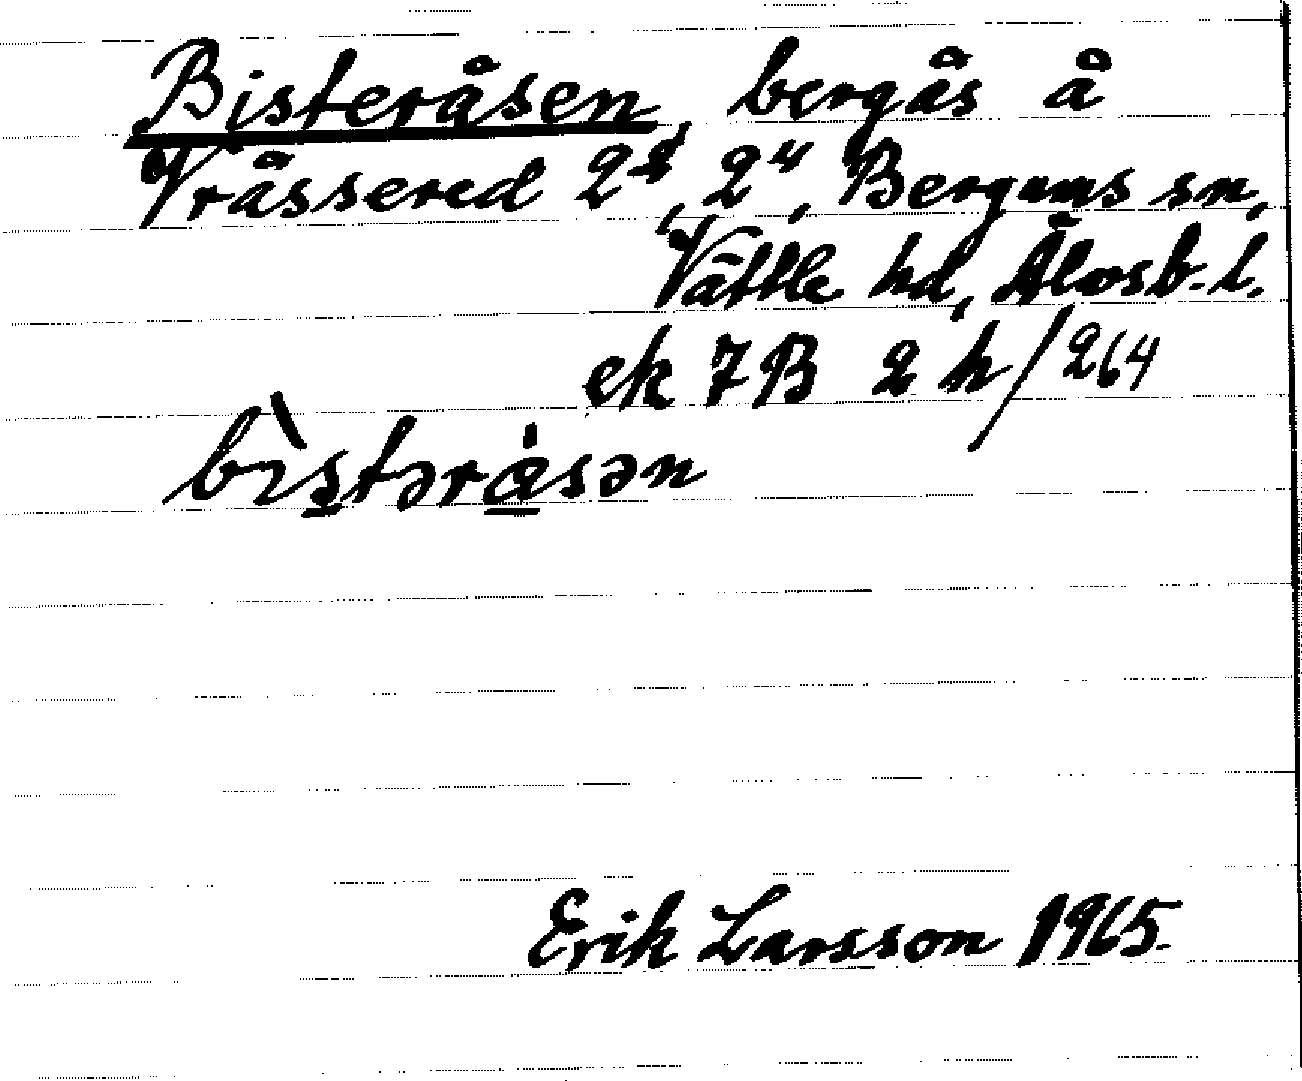 Bisteråsen, bergås å
Vråssered 2², 2⁴, Bergums sn,
Vättle hd, Älvsb. l.
ek 7B 2h/264
bìstəråsən
Erik Larsson 1965.